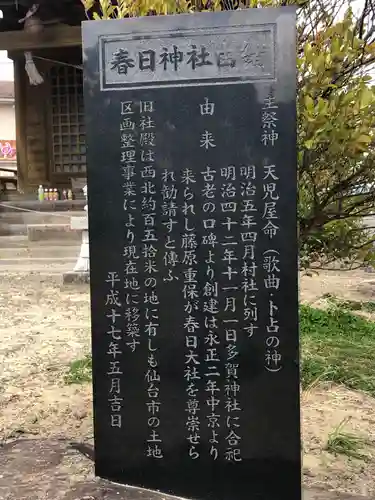 春日神社由緒
主祭神 天児屋命(歌曲・卜占の神)
明治五年四月村社に列す
明治四十二年十一月一日多賀神社に合祀
由来 古老の口碑より創建は永正二年中京より
来られし藤原重保が春日大社を尊崇せら
れ勧請すと傳ふ
旧社殿は西北約百五拾米の地に有しも仙台市の土地
区画整理事業により現在地に移築す
平成十七年五月吉日